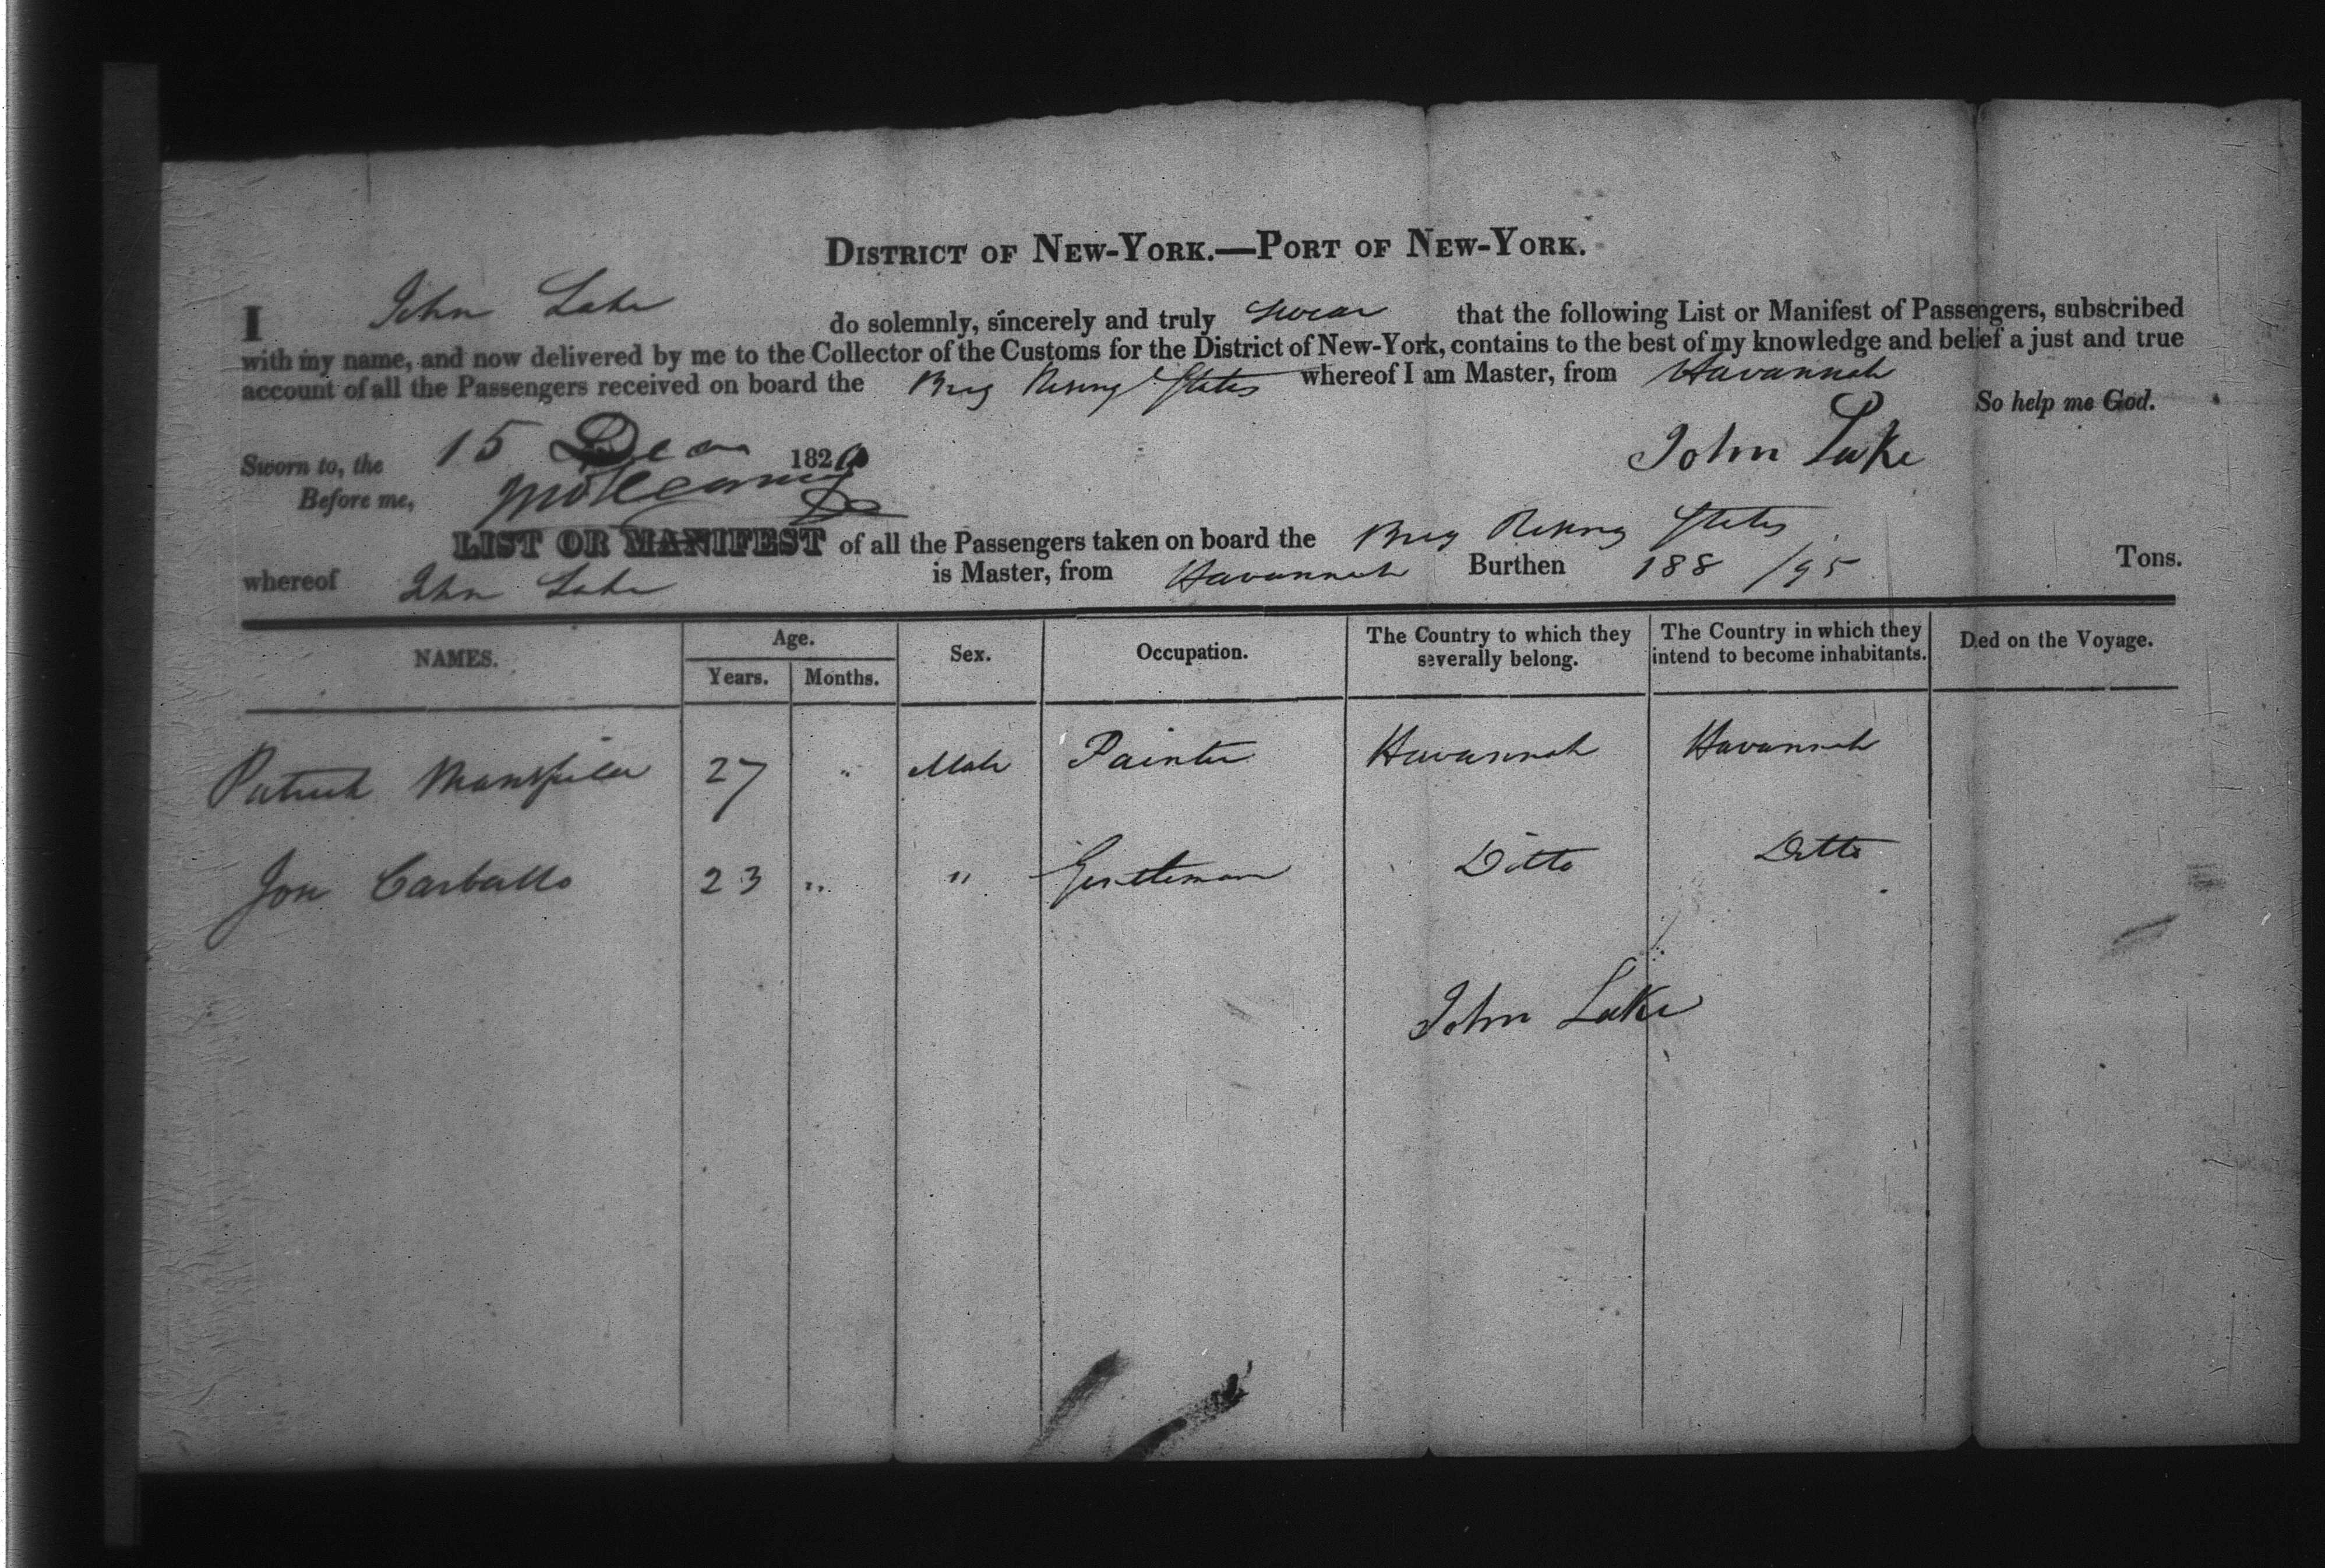 DISTRICT OF NEW-YORK.—PORT OF NEW-YORK.
I John Lake do solemnly, sincerely and truly swear that the following List or Manifest of Passengers, subscribed
with my name, and now delivered by me to the Collector of the Customs for the District of New-York, contains to the best of my knowledge and belief a just and true
account of all the Passengers received on board the Brig Rising States whereof I am Master, from Havannah
So help me God.
Sworn to, the 15 182
John Lake
Before me,
LIST OR MANIFEST of all the Passengers taken on board the Brig Rising States
whereof John Lake is Master, from Havannah Burthen 188 /95 Tons.
NAMES. Age. Years. Months. Sex. Occupation. The Country to which they severally belong. The Country in which they intend to become inhabitants. Died on the Voyage.
Patrick Mansfield 27 " Male Painter Havannah Havannah
Carballo 23 " " Gentleman Ditto Ditto
John Lake